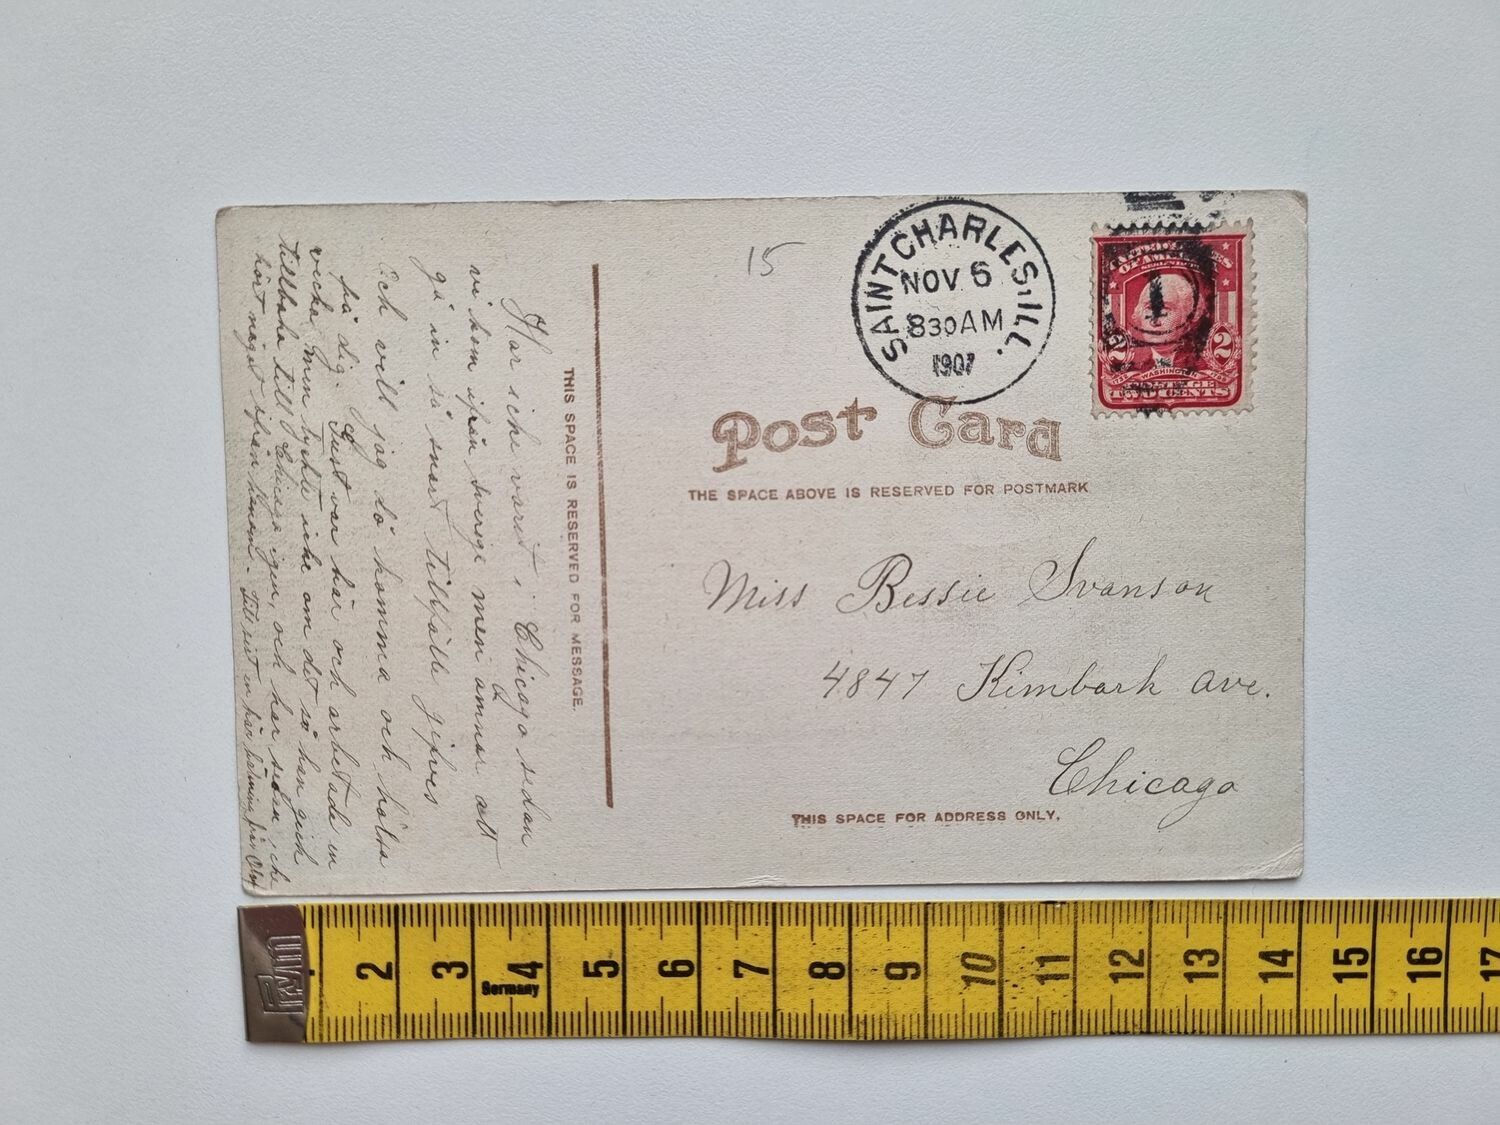 Har icke varit i Chicago sedan
vi kom ifrån Sverige men ämnar att
gå in så snart tillfälle gifves
och vill jag då komma och hälsa
på dig. Gust var här och arbetade en
vecka men tyckte icke om det så han gick
tillbaka till Chicago igen, och har sedan icke
hört något ifrån honom - Till sist en kär hälsning från Olof
THIS SPACE IS RESERVED FOR MESSAGE.
15
SAINT CHARLES, ILL.
NOV 6
830 AM
1907
UNITED STATES
OF AMERICA
SERIES 1902
1
2
2
1732 WASHINGTON 1799
POSTAGE
TWO CENTS
Post Card
THE SPACE ABOVE IS RESERVED FOR POSTMARK
Miss Bessie Svanson
4847 Kimbark Ave.
Chicago
THIS SPACE FOR ADDRESS ONLY.
2 3 4 5 6 7 8 9 10 11 12 13 14 15 16 17
Germany